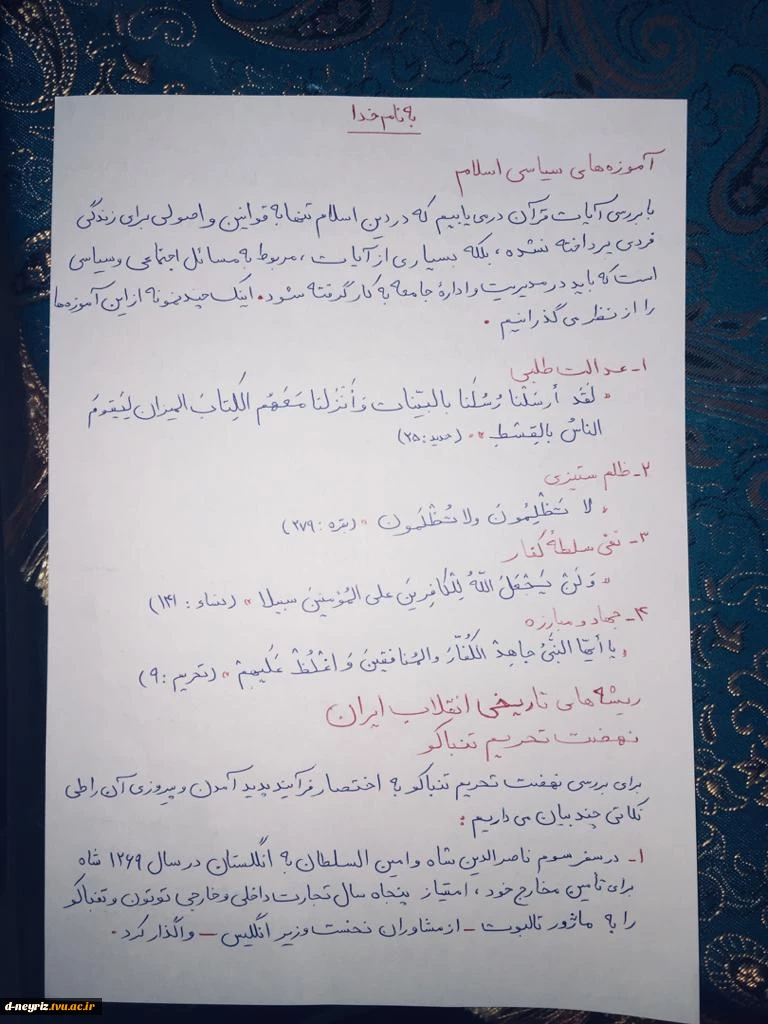 به نام خدا
آموزه‌های سیاسی اسلام
با بررسی آیات قرآن درمی یابیم که در دین اسلام تنها به قوانین و اصولی برای زندگی
فردی پرداخته نشده، بلکه بسیاری از آیات، مربوط به مسائل اجتماعی و سیاسی
است که باید در مدیریت و ادارهٔ جامعه به کار گرفته شود. اینک چند نمونه از این آموزه‌ها
را از نظر می گذرانیم.
۱- عدالت طلبی
« لَقَد أرسَلْنا رُسُلَنا بالبیّنات وَ أَنْزَلنا مَعَهُم الکِتابَ المیزان لِیَقومَ
الناسُ بالقِسْطِ » (حدید: ۲۵)
۲- ظلم ستیزی
« لا تَظْلِمُونَ ولا تُظْلَمون » (بقره: ۲۷۹)
۳- نفی سلطهٔ کفار
« وَ لَنْ یَجْعَلَ اللّهُ لِلْکافِرینَ علی المُؤمِنینَ سبیلا » (نساء: ۱۴۱)
۴- جهاد و مبارزه
« یا أیّها النبیُّ جاهِدْ الکُفّارَ والمُنافقینَ وَ اغْلُظْ عَلَیهِمْ » (تحریم: ۹)
ریشه های تاریخی انقلاب ایران
نهضت تحریم تنباکو
برای بررسی نهضت تحریم تنباکو به اختصار فرآیند پدید آمدن و پیروزی آن را طی
نکاتی چند بیان می داریم:
۱- در سفر سوم ناصرالدین شاه و امین السلطان به انگلستان در سال ۱۲۶۹ شاه
برای تامین مخارج خود، امتیاز پنجاه سال تجارت داخلی و خارجی توتون و تنباکو
را به ماژور تالبوت - از مشاوران نخست وزیر انگلیس - واگذار کرد.
d-neyriz.tvu.ac.ir